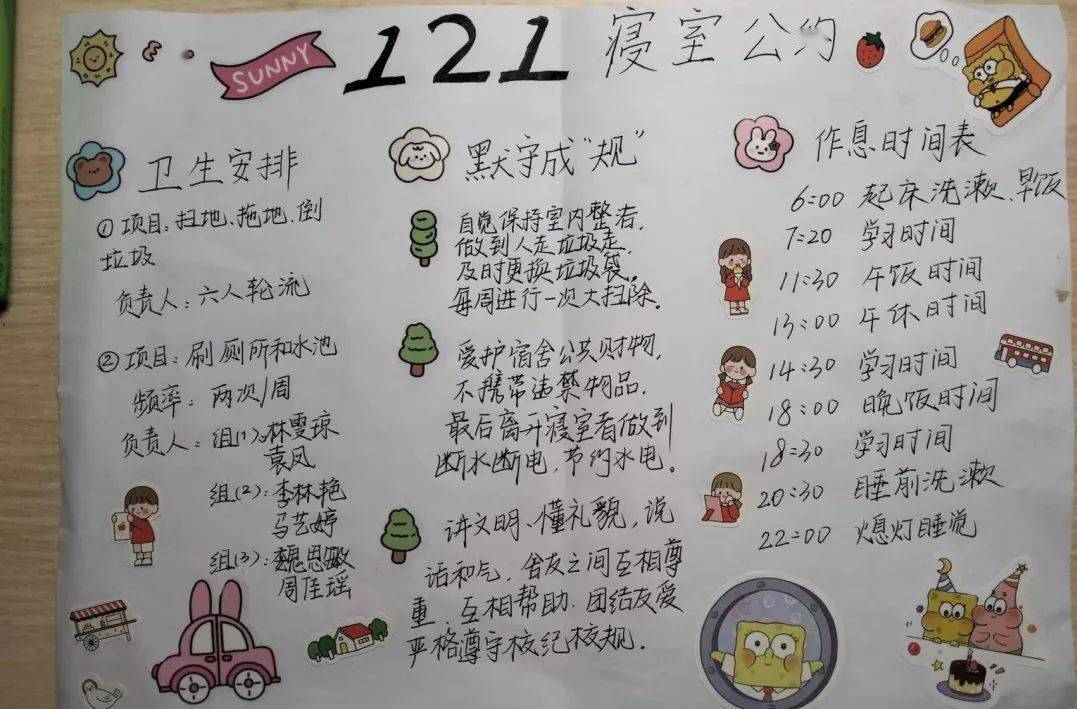 SUNNY
121 寝室公约
卫生安排
① 项目：扫地、拖地、倒
垃圾
负责人：六人轮流
② 项目：刷厕所和水池
频率：两次/周
负责人：组(1)：林雯琼
袁凤
组(2)：李林艳
马艺婷
组(3)：魏思敏
周佳瑶
默守成“规”
自觉保持室内整洁，
做到人走垃圾走，
及时更换垃圾袋。
每周进行一次大扫除。
爱护宿舍公共财物，
不携带违禁物品．
最后离开寝室者做到
断水断电，节约水电。
讲文明、懂礼貌，说
话和气，舍友之间互相尊
重，互相帮助．团结友爱
严格遵守校纪校规．
作息时间表
6:00 起床洗漱、早饭
7:20 学习时间
11:30 午饭时间
13:00 午休时间
14:30 学习时间
18:00 晚饭时间
18:30 学习时间
20:30 睡前洗漱
22:00 熄灯睡觉